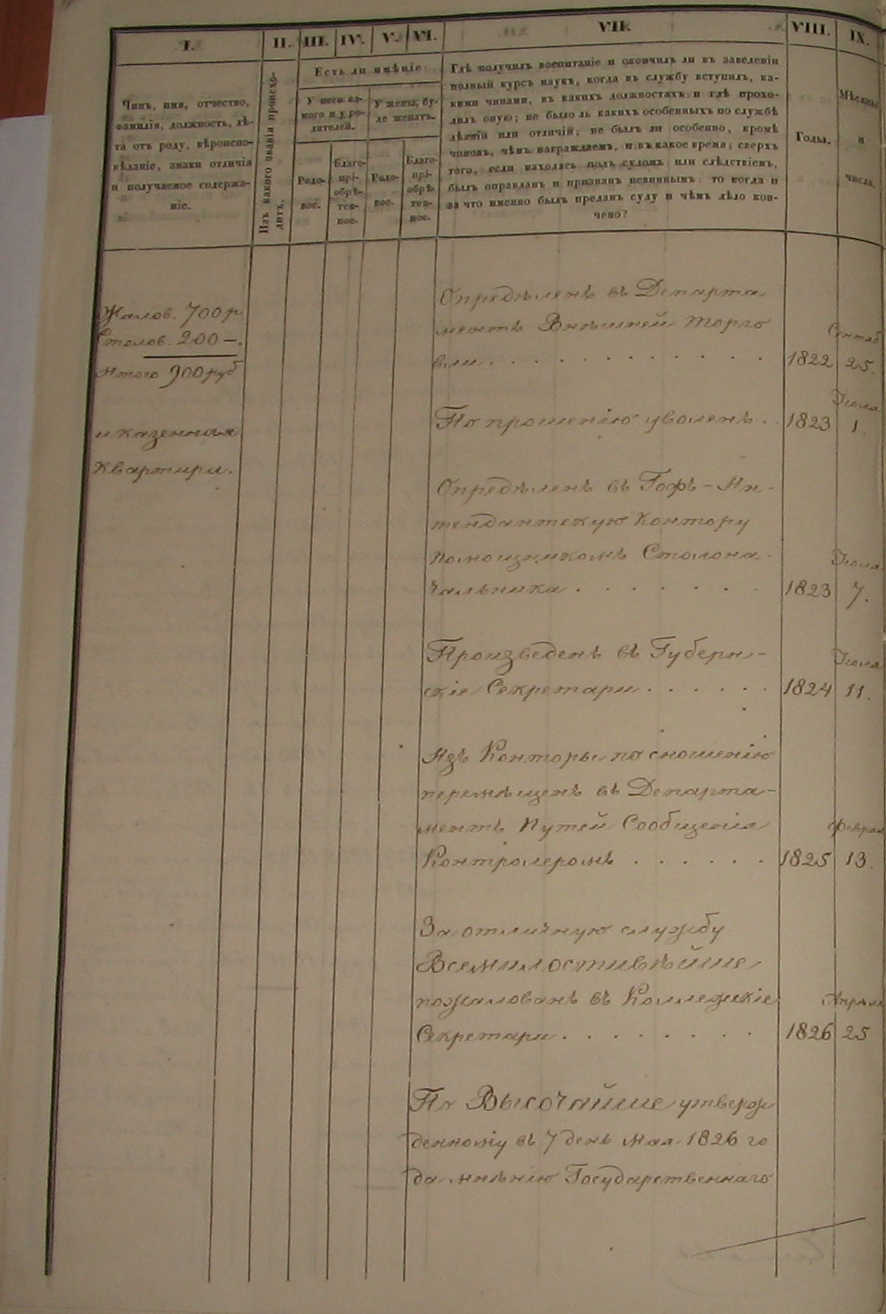 I.
II.
III.
IV.
V.
VI.
VII.
VIII.
IX.
Чинъ, имя, отчество,
фамилія, должность, лѣ-
та отъ роду, вѣроиспо-
вѣданіе, знаки отличія
и получаемое содержа-
ніе.
Изъ какого званія происхо-
дитъ.
Есть ли имѣніе
У него са-
мого и у ро-
дителей.
У жены, бу-
де женатъ.
Родо-
вое.
Благо-
прі-
обрѣ-
тен-
ное.
Родо-
вое.
Благо-
прі-
обрѣ-
тен-
ное.
Гдѣ получилъ воспитаніе и окончилъ ли въ заведеніи
полный курсъ наукъ, когда въ службу вступилъ, ка-
кими чинами, въ какихъ должностяхъ и гдѣ прохо-
дилъ оную; не было ль какихъ особенныхъ по службѣ
дѣяній или отличій; не былъ ли особенно, кромѣ
чиновъ, чѣмъ награждаемъ, и въ какое время; сверхъ
того, если находясь подъ судомъ или слѣдствіемъ,
былъ оправданъ и признанъ невиннымъ: то когда и
за что именно былъ преданъ суду и чѣмъ дѣло кон-
чено?
Годы.
Мѣсяцы
и
числа.
Жалов. 700 р
Столов. 200 —.
Итого 900 руб
и казенная
квартира.
Опредѣленъ въ Департа
ментъ Внѣшней Торго
вли . . . . . . . . . . . . 1822 Сентяб 25.
По прошенію уволенъ . . 1823 Іюля 1.
Опредѣленъ въ Гофъ-Ин-
тендантскую Контору
помощникомъ Столона-
чальника . . . . . . . 1823 Іюля 7.
Произведенъ въ Губерн-
скіе Секретари . . . . . . 1824 Іюля 11.
Изъ Конторы по сношенію
перемѣщенъ въ Департа-
ментъ Путей Сообщенія
Контролеромъ . . . . . . 1825 Феврал 13.
За отличную службу
Всемилостивѣйше
пожалованъ въ Коллежскіе
Секретари . . . . . . . . 1826 Апреля 25
По Высочайше утверж
денному въ 7 день Мая 1826 го
да мнѣнію Государственнаго